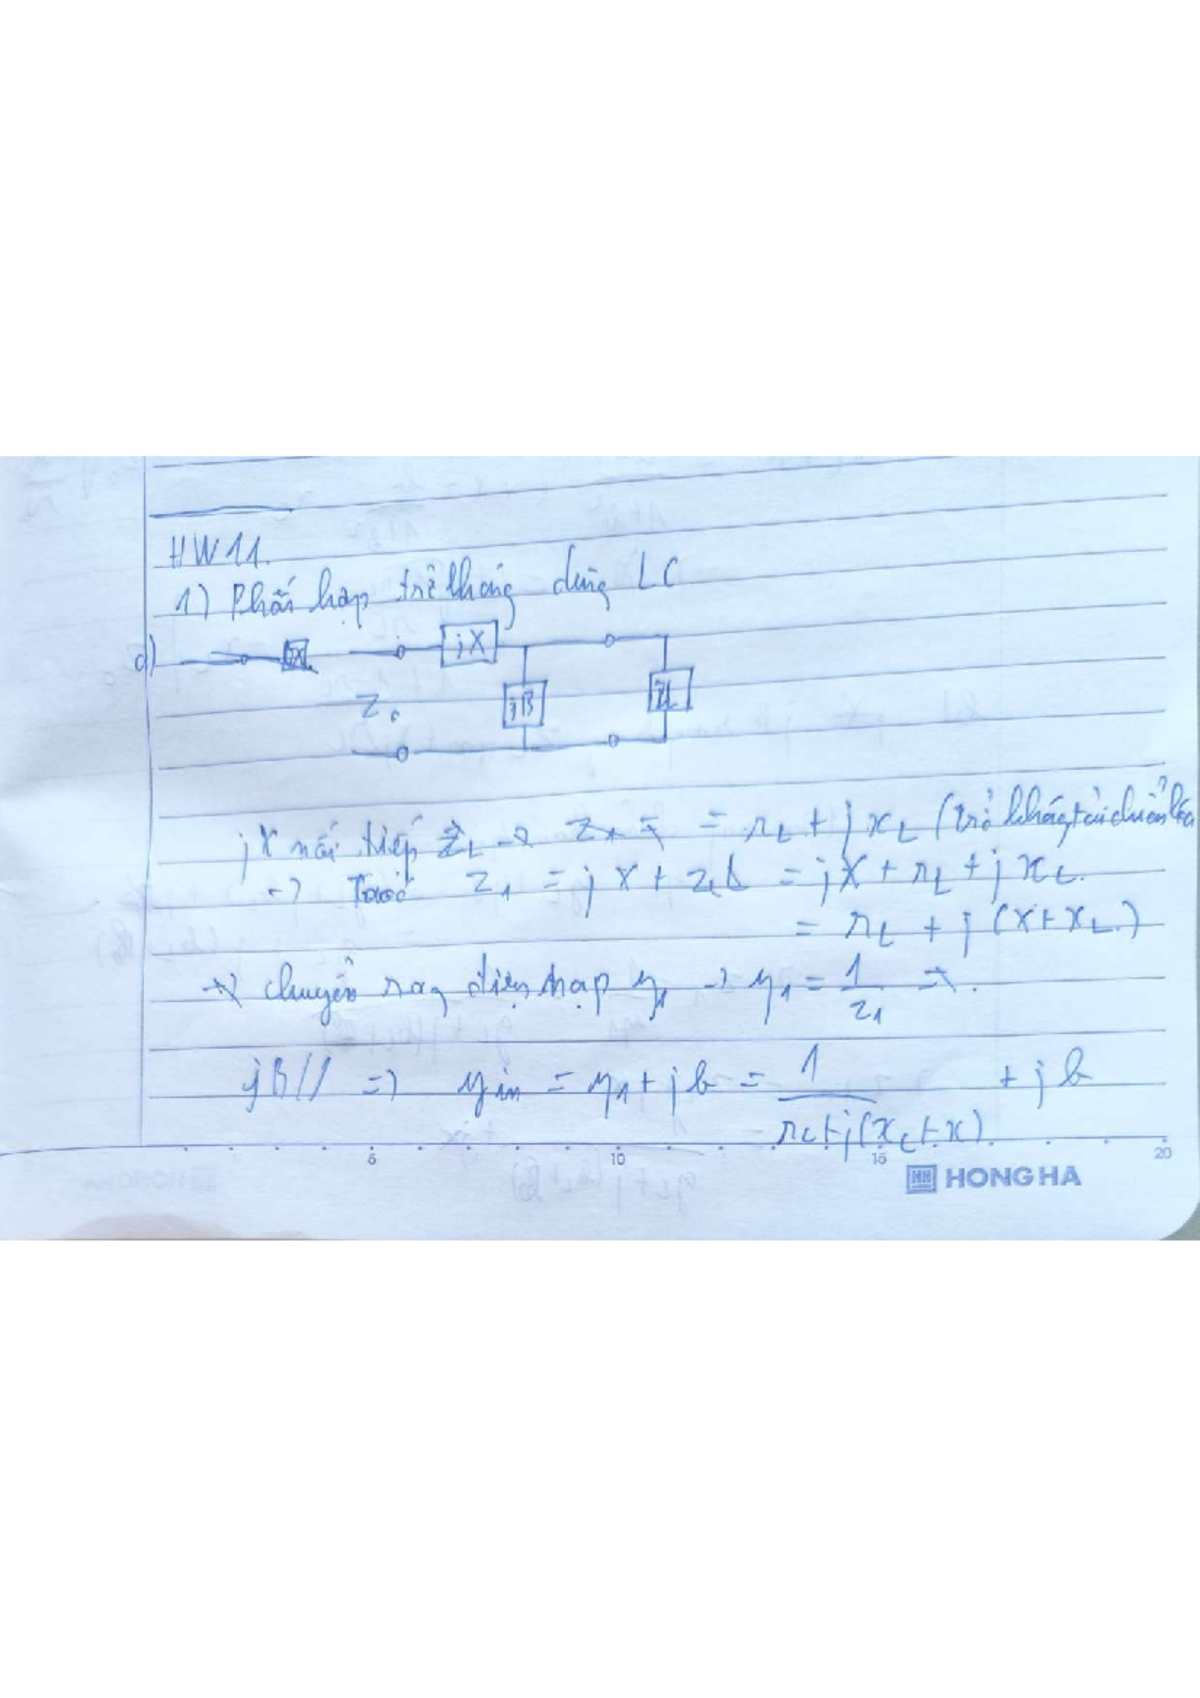 HW11.
1) Phối hợp trở kháng dùng LC
a)
jX
Z₀ jB ZL
jX nối tiếp ZL → = rL + j xL (trở kháng tải chuẩn hóa
=> z1 = jX + zL = jX + rL + j xL
= rL + j (X + xL)
chuyển sang điện nạp y1 → y1 = 1/z1 =>.
jB // => yin = y1 + jb = 1/(rL + j(xL + x)) + jb
5 10 15 20
HH HONG HA